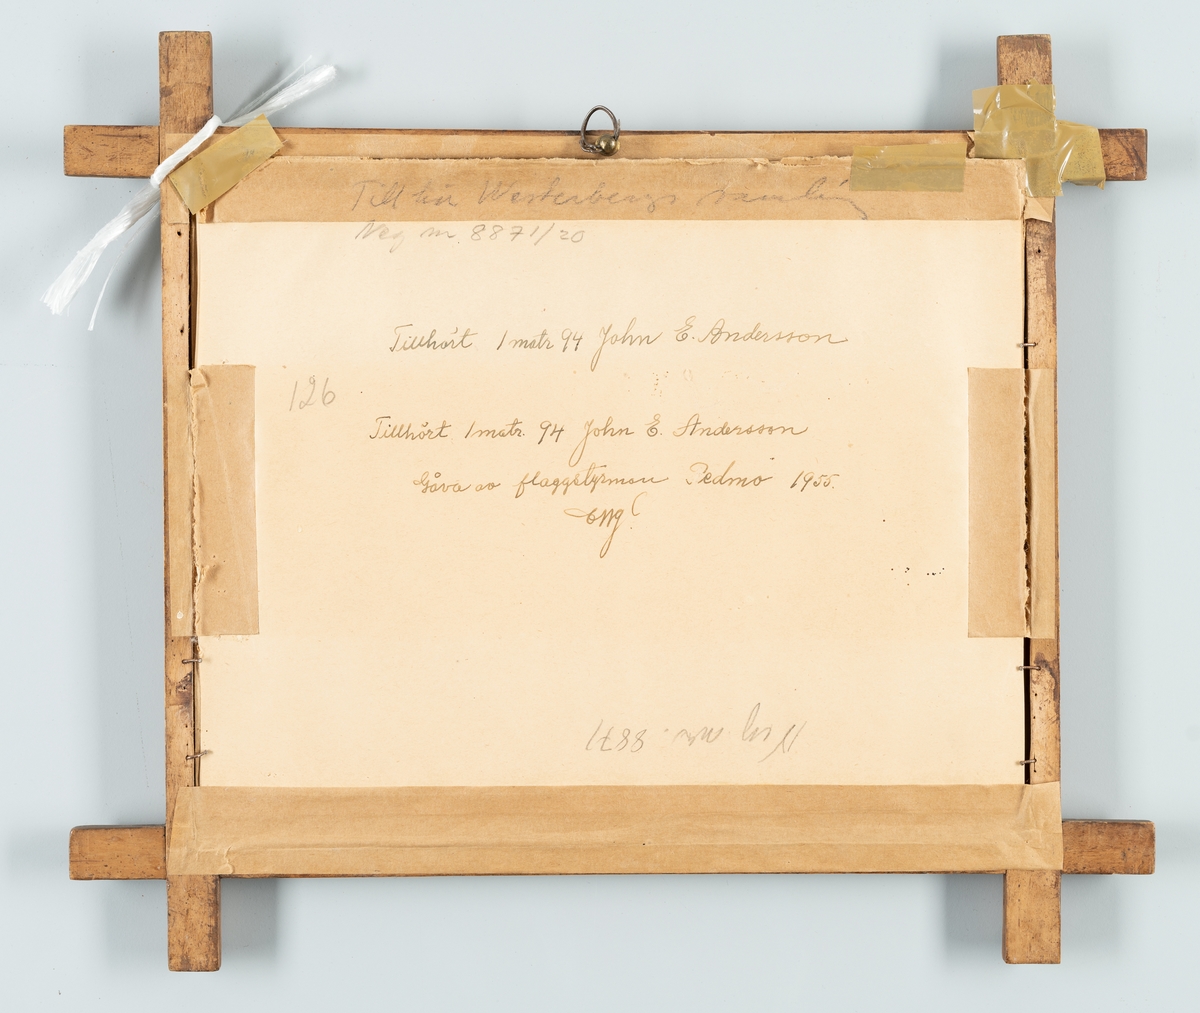 Tillhör Westerbergs samling
Neg nr. 8871/20
Tillhört 1 matr 94 John E. Andersson
126
Tillhört 1 matr. 94 John E. Andersson
Gåva av flaggstyrman Pedmo 1955.
Neg nr. 8871